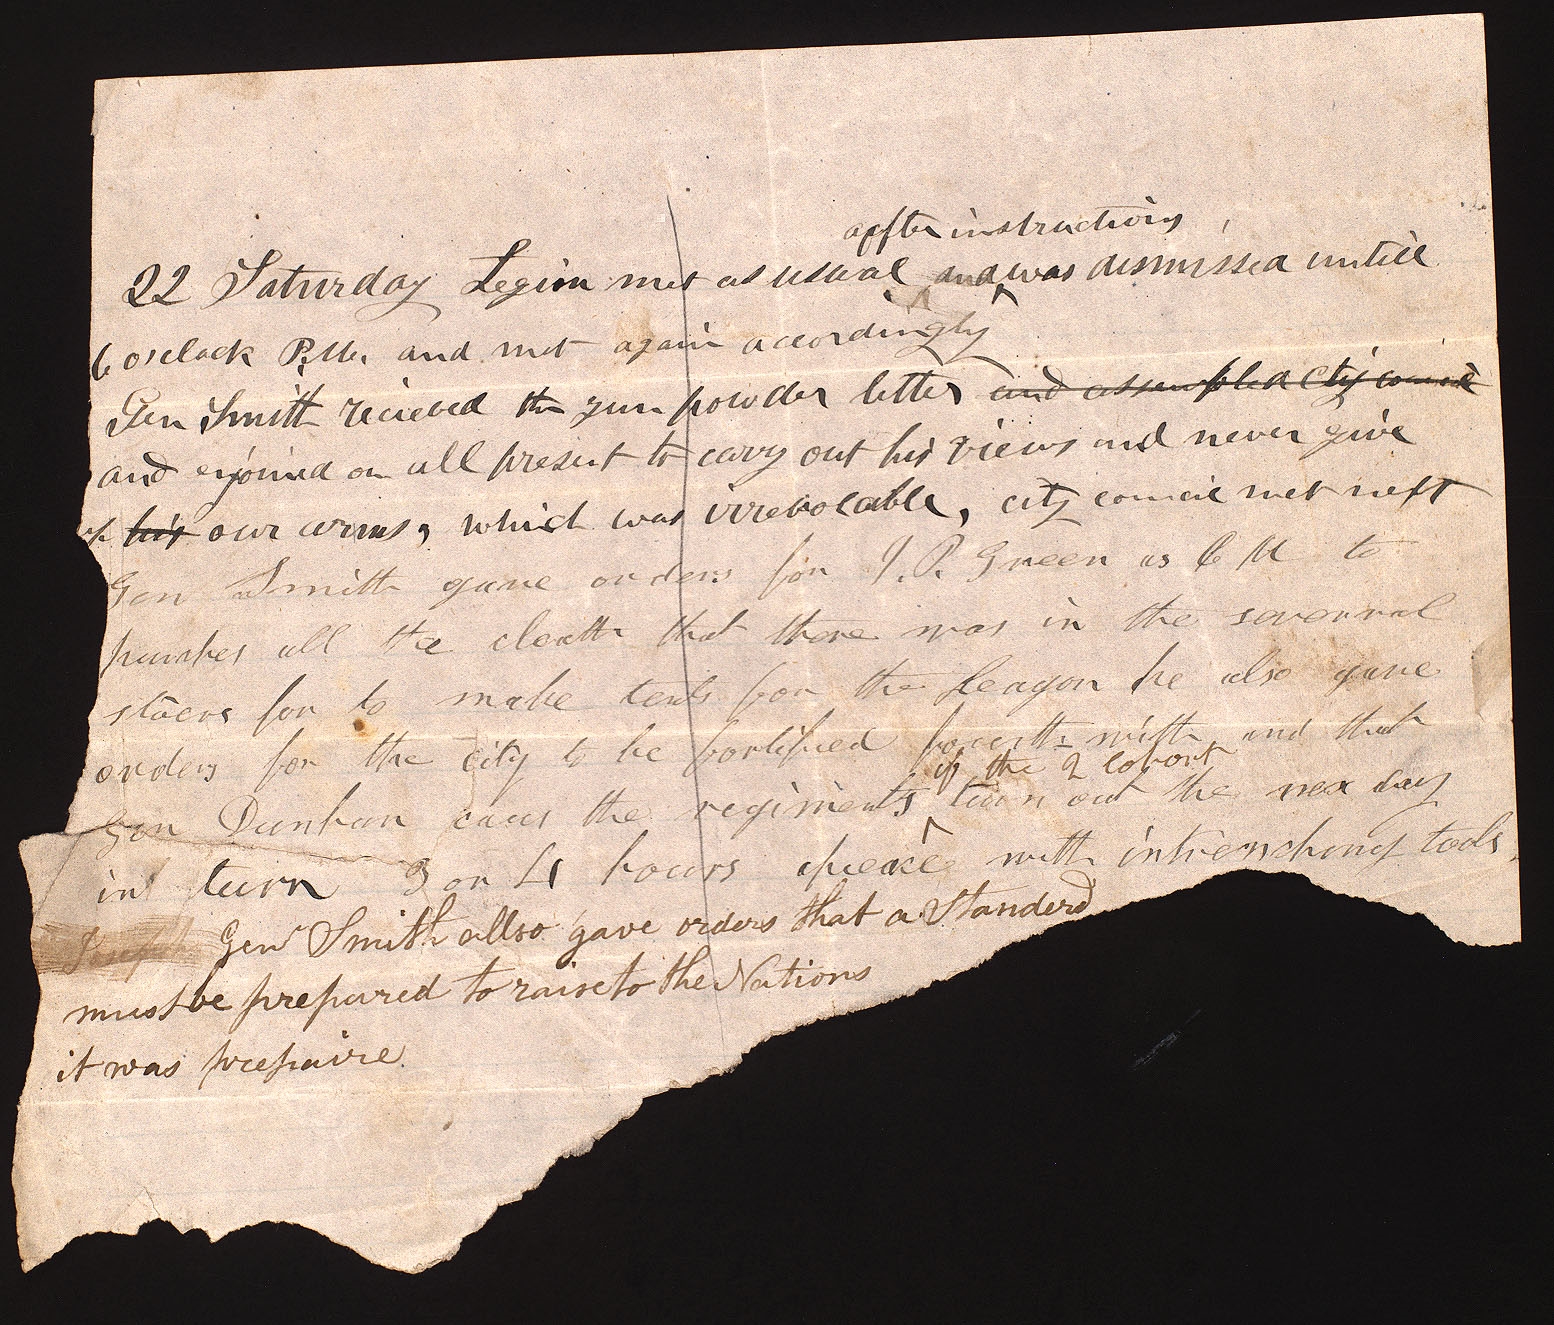 apfter instructions
22 Saturday Legion met as usual and was dismissed untill
6 oclock P.M. and met again accordingly
Gen Smith recieved the gun powder letter and assembled city council
and enjoined on all present to carry out his views and never give
up his our arms, which was irrevocable, city council met
Gen Smith gave orders for J. P. Green as C M to
purches all the cloath that there was in the severral
stoers for to make tents for the Leagon he also gave
orders for the city to be fortified forerth with and that
of the 2 cohort
Gen Dunham caus the regiments turn out the nex day
in turn 3 or 4 hours with intrenching tools
Joseph Genl Smith allso gave orders that a Standerd
must be prepared to raise to the Nations
it was prepaire